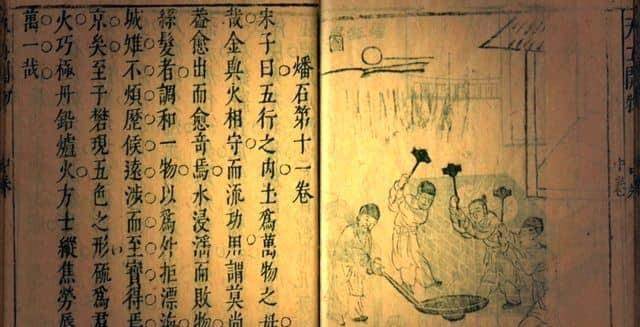 天工開物
中卷
燔石第十一卷
宋子曰五行之內土爲萬物之母
哉金與火相守而流功用謂莫尚
葢愈出而愈奇焉水浸淫而敗物
絲髮者調和一物以爲外拒漂海
城雉不煩歷候遠涉而至寶得焉
京矣至于礬現五色之形硫爲羣
火巧極丹鉛爐火方士縱焦勞脣
萬一哉
中卷